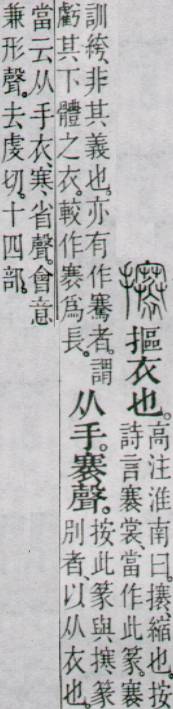 攐摳衣也。
高注淮南曰。攐、縮也。按
詩言褰裳、當作此篆。褰
訓絝、非其義也。亦有作騫者。謂
虧其下體之衣。較作褰爲長。
从手。褰聲。
按此篆與攓篆
別者、以从衣也。
當云从手衣、寒省聲。會意
兼形聲。去虔切。十四部。